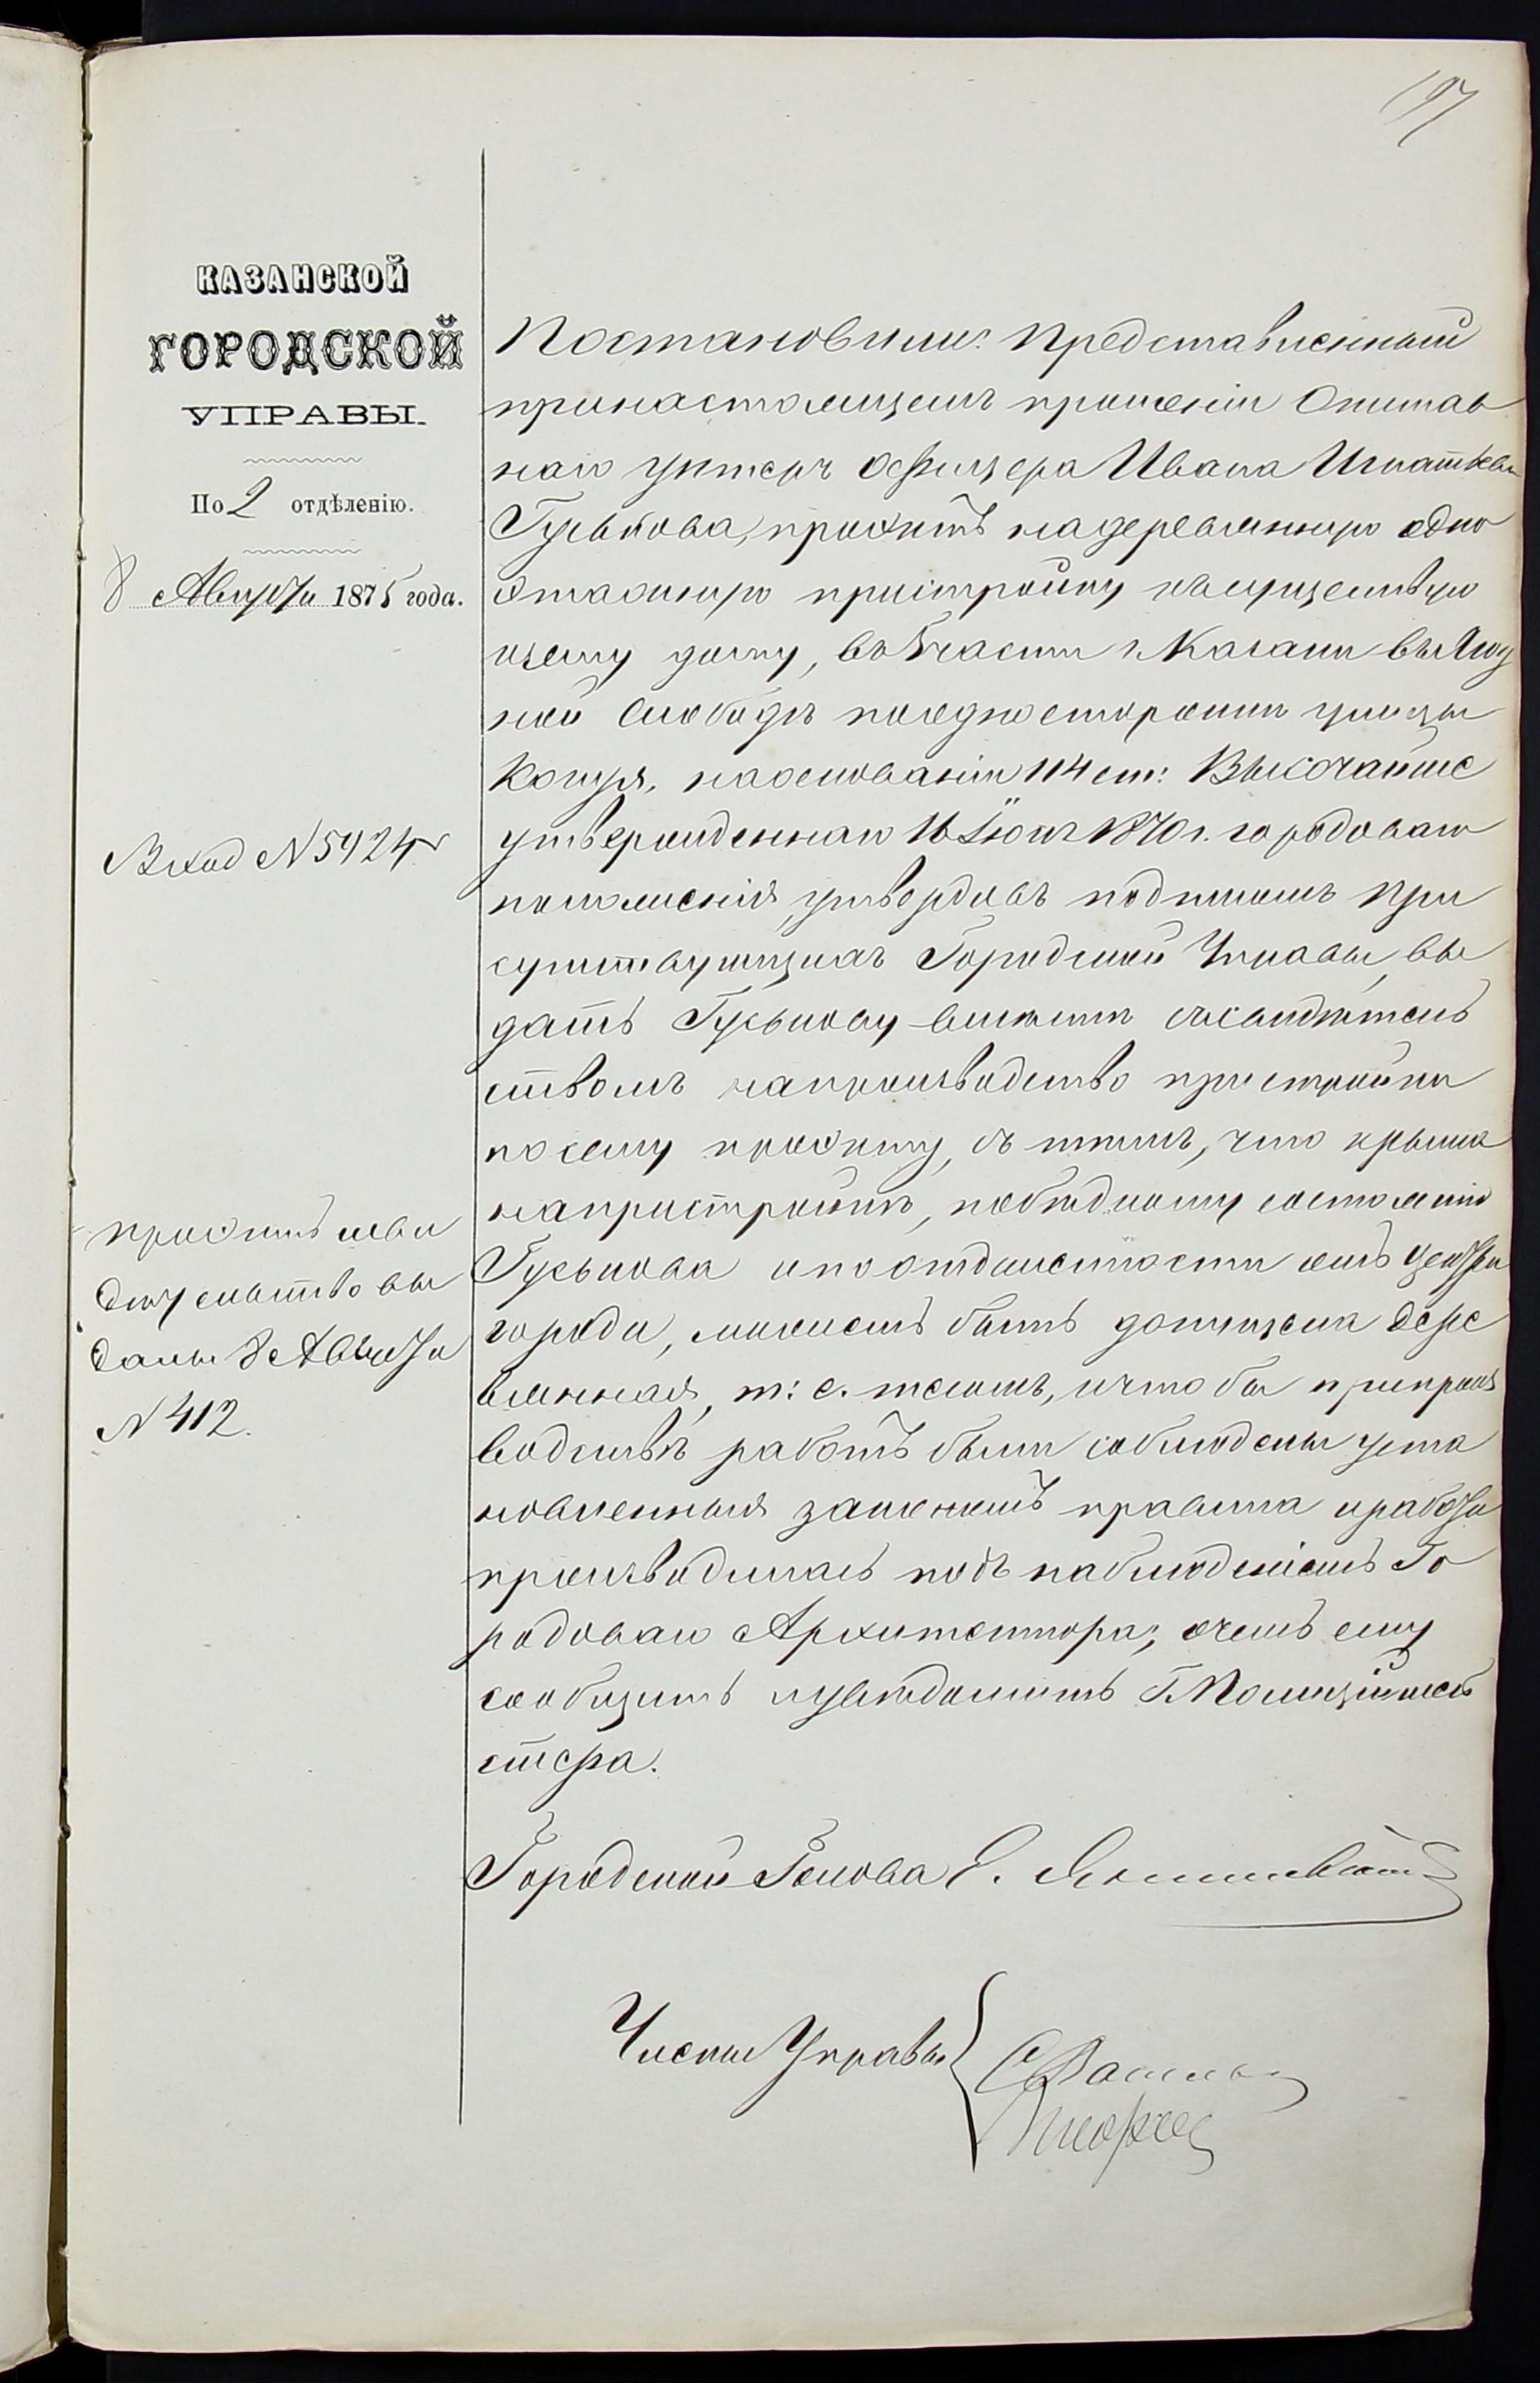 197
КАЗАНСКОЙ
ГОРОДСКОЙ
УПРАВЫ.
По 2 отдѣленію.
8 Августа 1875 года.
Вход №5924
проэктъ и сви
дѣтельство вы
даны 8 Августа
№ 412.
Постановили: Представленный
принастоящемъ прошеніи Отстав
наго унтеръ Офицера Ивана Игнатьева
Гуськова, проэктъ надеревянную одно
этажную пристройку къ существую
щему дому, въ 5 части г. Казани въ Ягод
ной Слободѣ поюдносторонни улицы
наоснованіи 114 ст: Высочайше
утвержденнаго 16 Іюня 1870 г. городоваго
положенія, утвердивъ подписомъ при
сутствующихъ Городской Управы, вы
дать Гуськову вмѣстѣ съ свидѣтель
ствомъ напроизводство пристройки
по сему проэкту, съ тѣмъ, что крыша
напристройкѣ, побѣдному состоянію
Гуськова и поотдаленности отъ центра
города, можетъ быть допущена дере
вянная, т: е. тесомъ, и чтобы припроиз
водствѣ работъ были соблюдены уста
новленныя закономъ правила и работа
производилась подъ наблюденіемъ Го
родоваго Архитектора; очемъ ему
сообщить и увѣдомить Г. Полиційме
стера.
Городской Голова Е. Янишевскій
Члены Управы